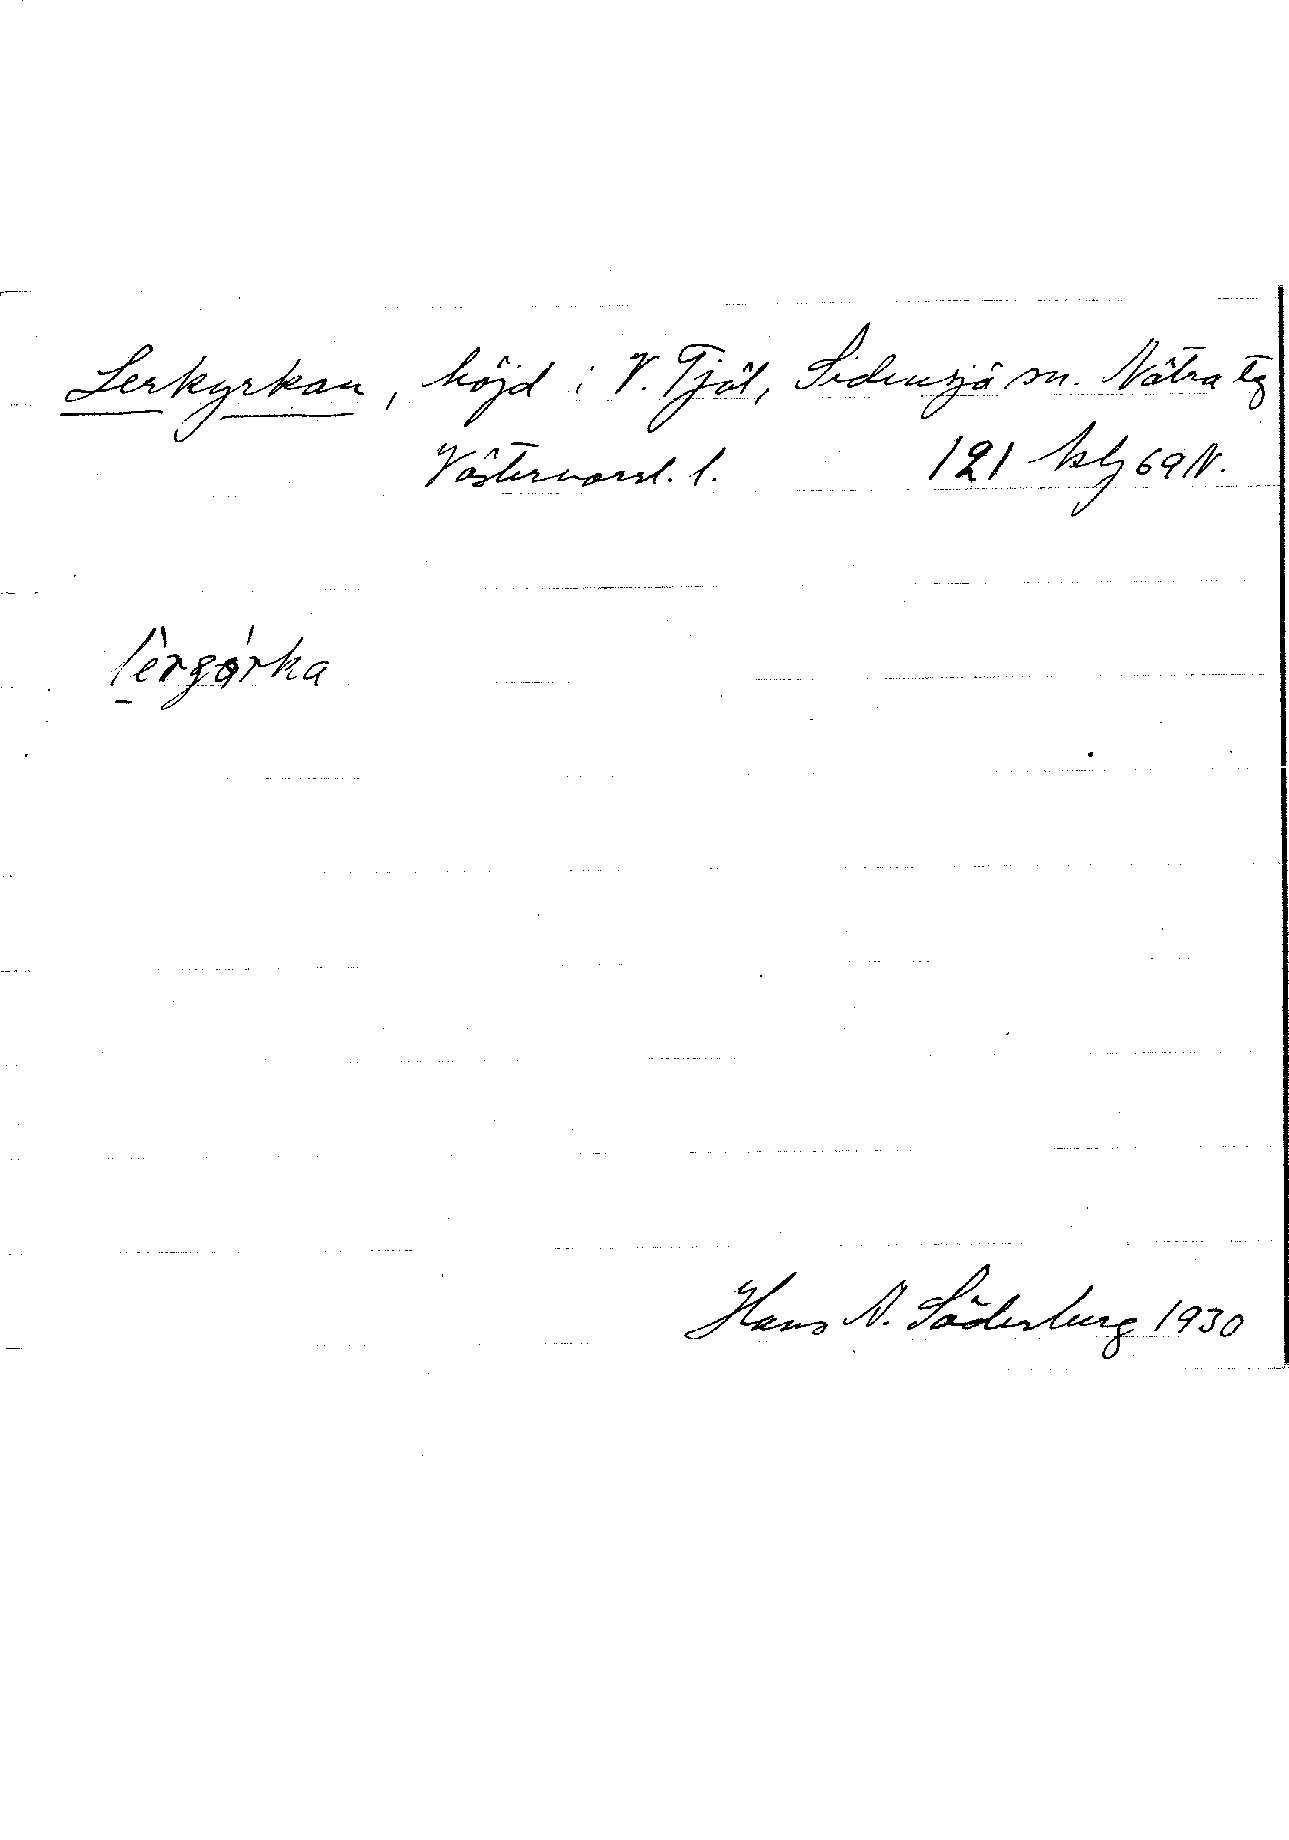 Lerkyrkan, höjd i V. Tjäl, Sidensjö sn. Nätra tg
Västernorrl. l. 121 69 N.
Hans N. Söderberg 1930